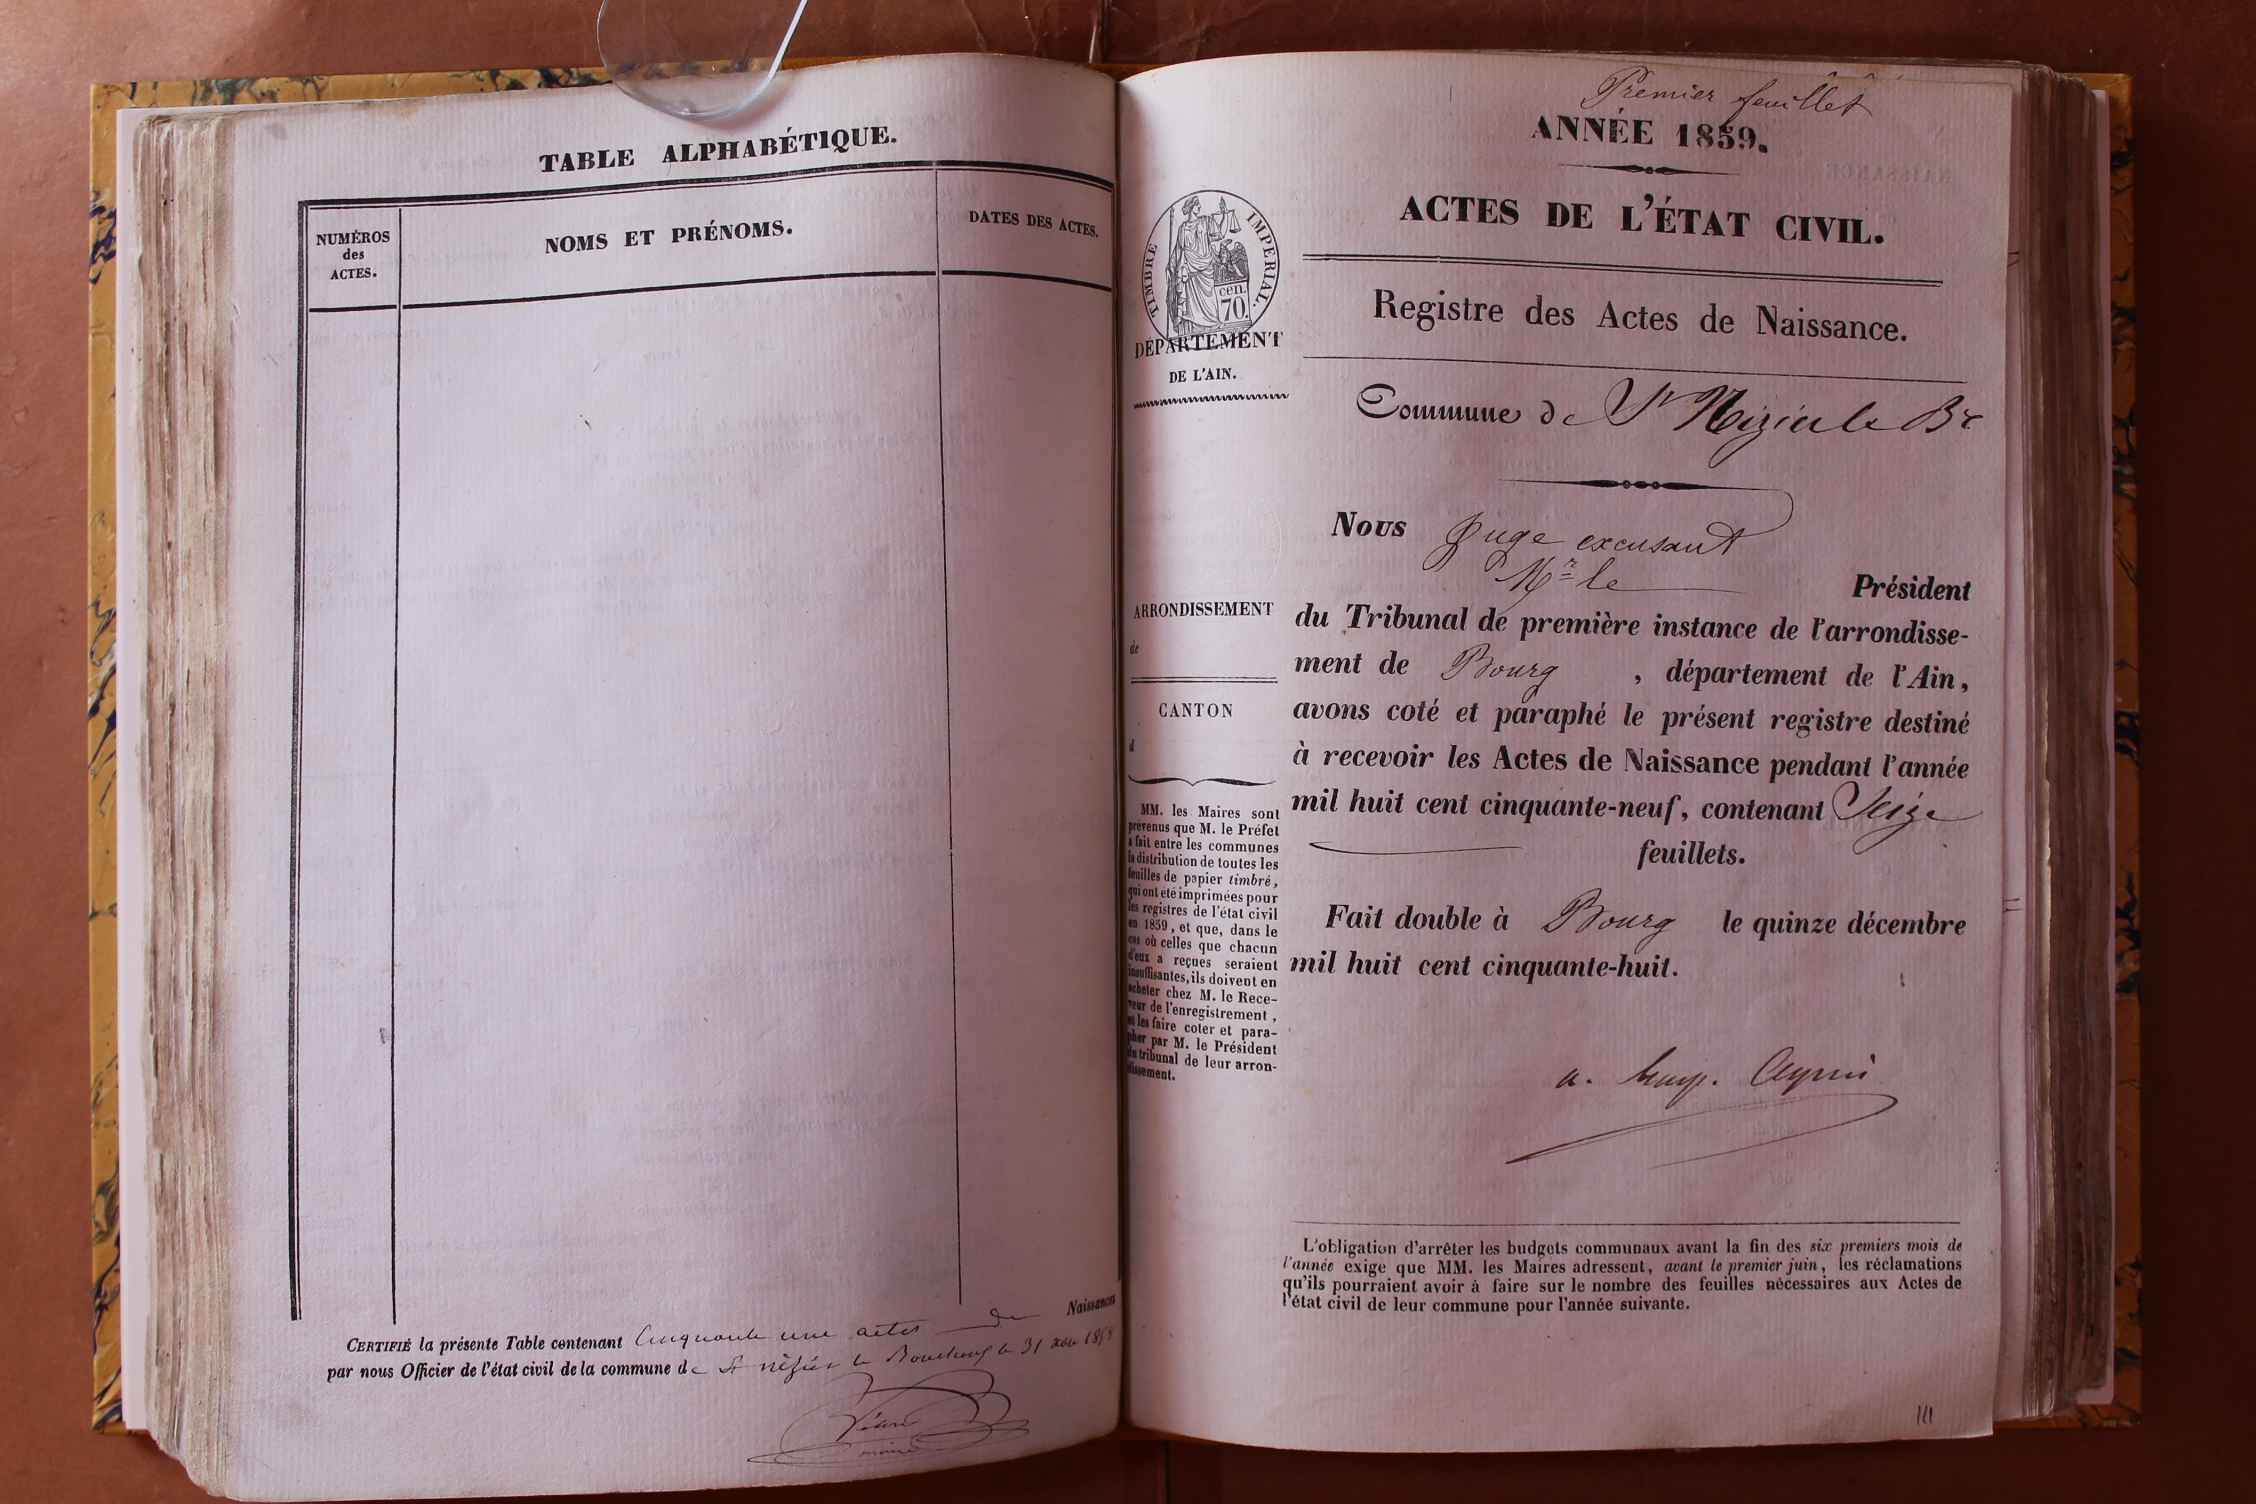 TABLE ALPHABÉTIQUE.
NUMÉROS
des
ACTES.
NOMS ET PRÉNOMS.
DATES DES ACTES.
CERTIFIÉ la présente Table contenant Cinquante une actes de Naissances
par nous Officier de l'état civil de la commune de St nizier le Bouchoux le 31 Xbre 1858
maire
Premier feuillet
ANNÉE 1859.
ACTES DE L'ÉTAT CIVIL.
TIMBRE IMPÉRIAL.
cen.
70.
DÉPARTEMENT
DE L'AIN.
Registre des Actes de Naissance.
Commune de St Nizier le Bx
Nous Juge excusant
Mr le Président
du Tribunal de première instance de l'arrondisse-
ment de Bourg , département de l'Ain,
avons coté et paraphé le présent registre destiné
à recevoir les Actes de Naissance pendant l'année
mil huit cent cinquante-neuf, contenant Seize
feuillets.
Fait double à Bourg le quinze décembre
mil huit cent cinquante-huit.
ARRONDISSEMENT
de
CANTON
d
MM. les Maires sont
prévenus que M. le Préfet
a fait entre les communes
la distribution de toutes les
feuilles de papier timbré,
qui ont été imprimées pour
les registres de l'état civil
en 1859, et que, dans le
cas où celles que chacun
d'eux a reçues seraient
insuffisantes, ils doivent en
acheter chez M. le Rece-
veur de l'enregistrement,
et les faire coter et para-
pher par M. le Président
du tribunal de leur arron-
dissement.
L'obligation d'arrêter les budgets communaux avant la fin des six premiers mois de
l'année exige que MM. les Maires adressent, avant le premier juin, les réclamations
qu'ils pourraient avoir à faire sur le nombre des feuilles nécessaires aux Actes de
l'état civil de leur commune pour l'année suivante.